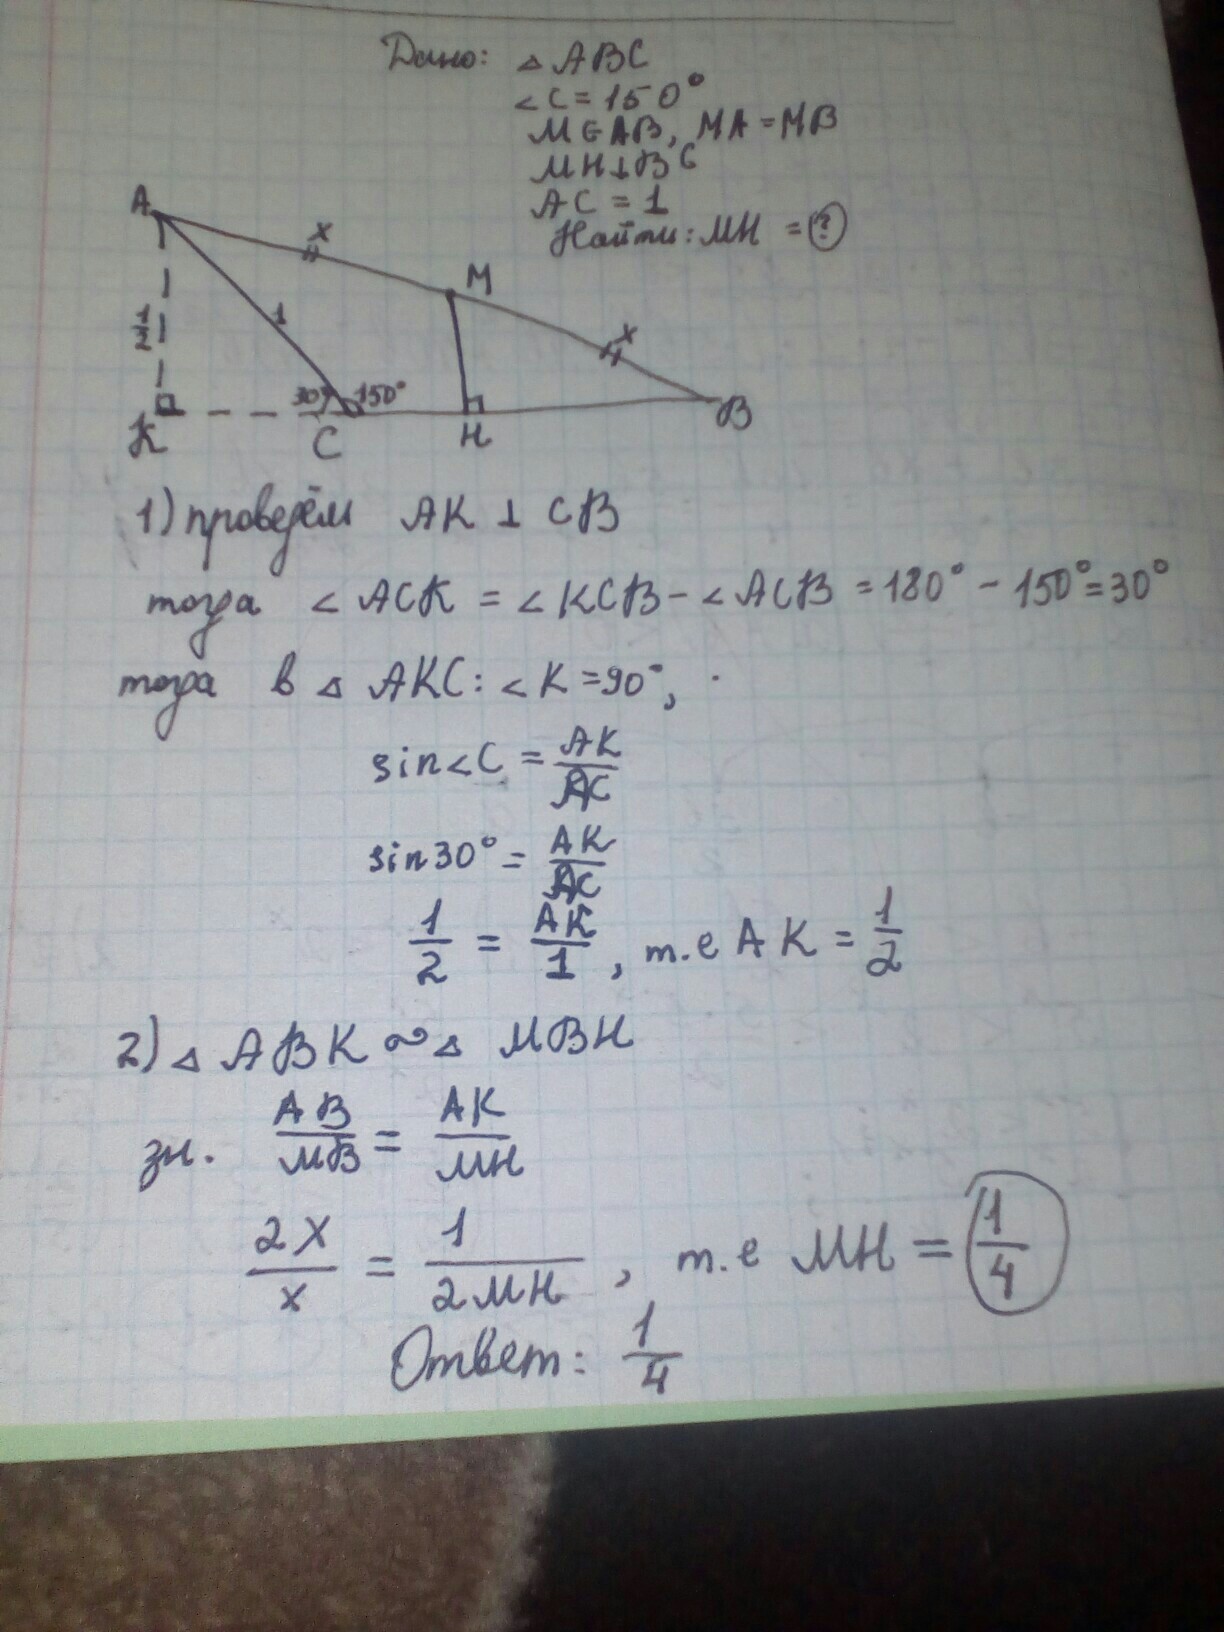 Дано: △ ABC
∠C = 150°
M∈AB, MA = MB
MH⊥BC
AC = 1
Найти: MH = ?
A
x
M
1/2
1
x
30°
150°
K
C
H
B
1) проведём AK ⊥ CB
тогда ∠ ACK = ∠ KCB - ∠ ACB = 180° - 150° = 30°
тогда в △ AKC: ∠K = 90°,
sin∠C = AK/AC
sin30° = AK/AC
1/2 = AK/1, т.е AK = 1/2
2) △ ABK ∾ △ MBH
зн. AB/MB = AK/MH
2x/x = 1/2MH, т.е MH = 1/4
Ответ: 1/4